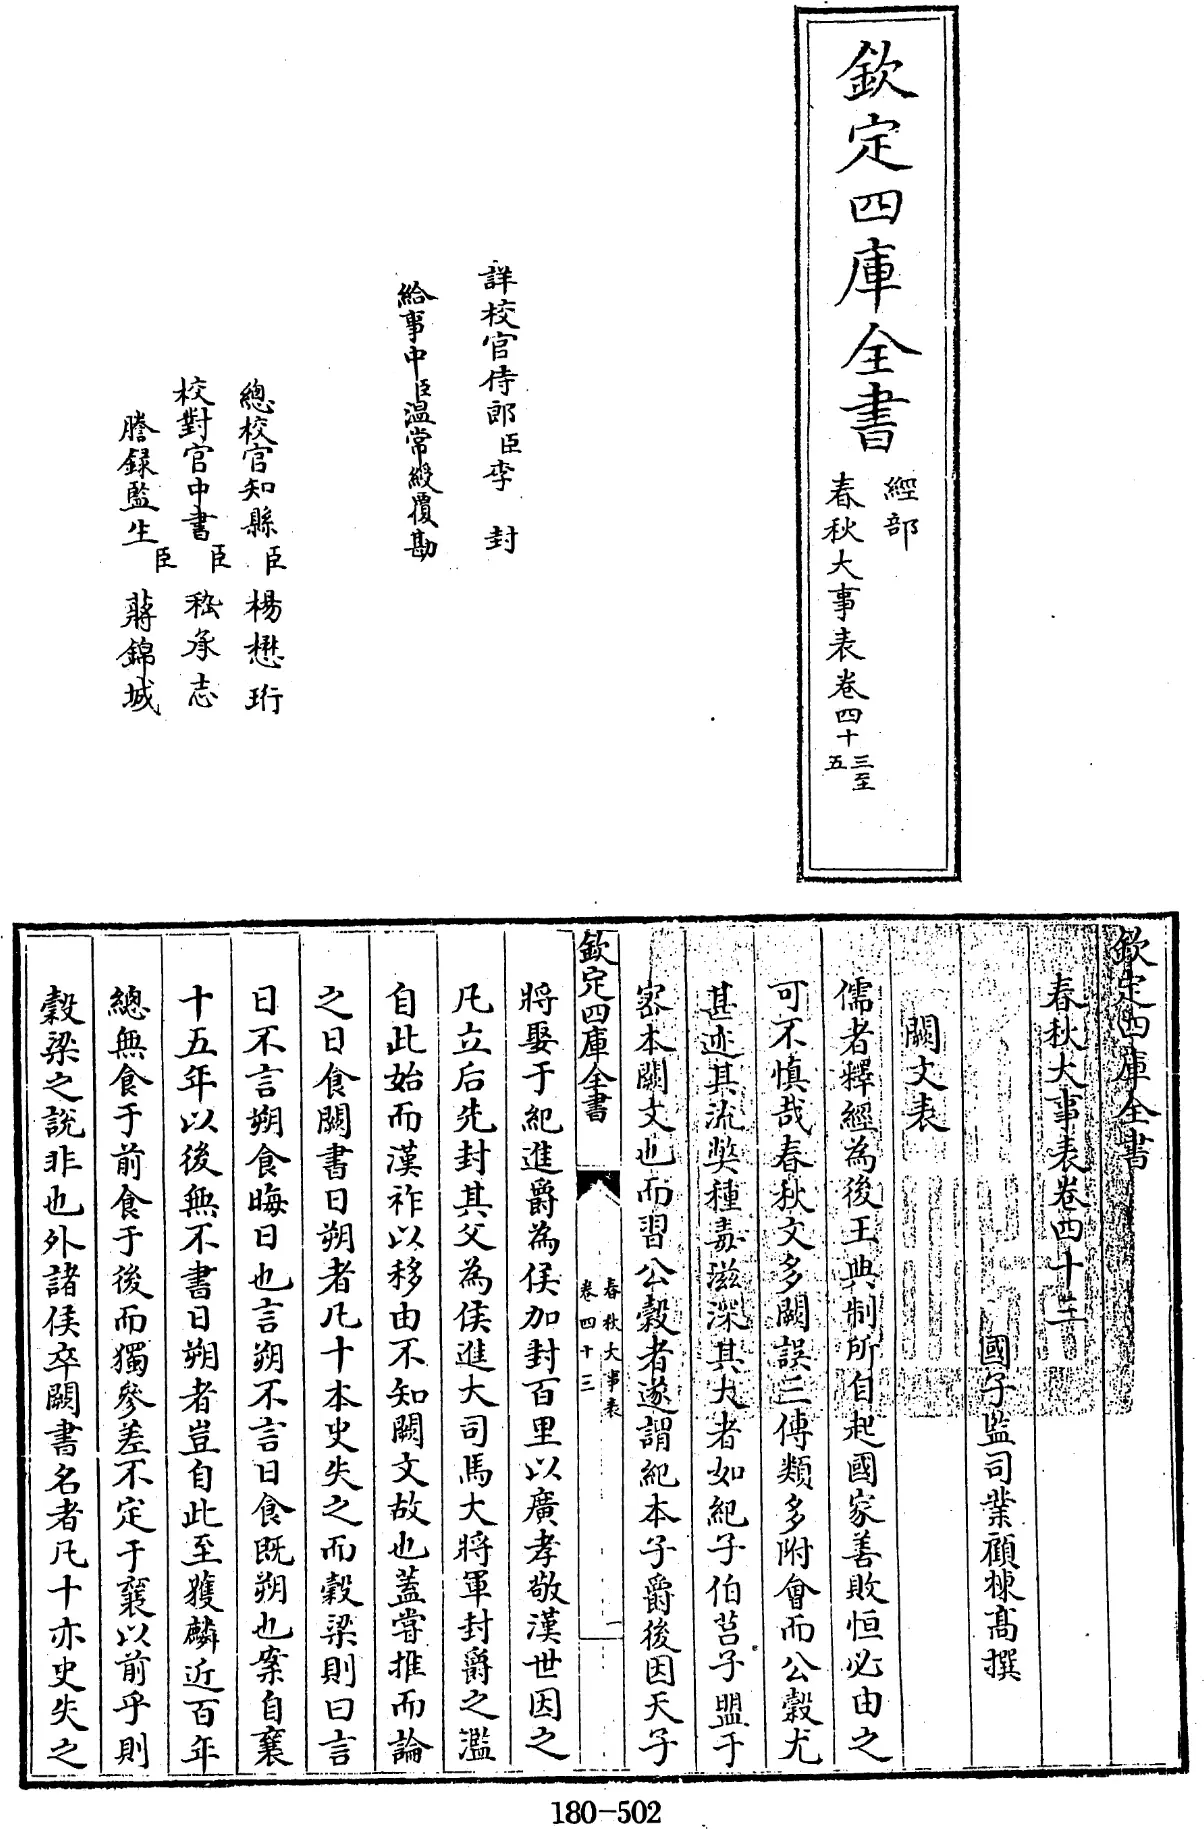 欽定四庫全書
經部
春秋大事表卷四十三至五
詳校官侍郎臣李封
給事中臣溫常綬覆勘
總校官知縣臣楊懋珩
校對官中書臣嵇承志
謄錄監生臣蔣錦城
欽定四庫全書
春秋大事表卷四十三
國子監司業顧棟高撰
闕文表
儒者釋經為後王典制所自起國家善敗恒必由之
可不慎哉春秋文多闕誤三傳類多附會而公穀尤
甚迹其流獘種毒滋深其大者如紀子伯莒子盟于
宻本闕文也而習公穀者遂謂紀本子爵後因天子
欽定四庫全書
春秋大事表
卷四十三
一
將娶于紀進爵為侯加封百里以廣孝敬漢世因之
凡立后先封其父為侯進大司馬大將軍封爵之濫
自此始而漢祚以移由不知闕文故也蓋嘗推而論
之日食闕書日朔者凡十本史失之而穀梁則曰言
日不言朔食晦日也言朔不言日食既朔也案自襄
十五年以後無不書日朔者豈自此至獲麟近百年
總無食于前食于後而獨參差不定于襄以前乎則
穀梁之說非也外諸侯卒闕書名者凡十亦史失之
180-502